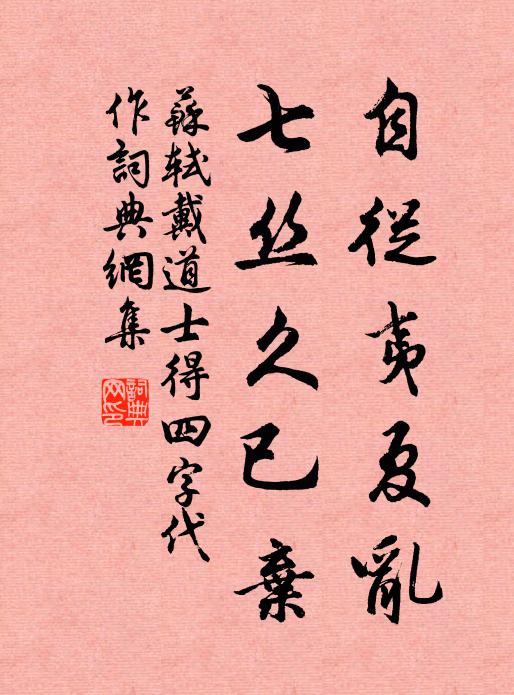 自從夷夏亂
七丝久已棄
蘇軾戴道士得四字代
作詞典網集
詞典網印